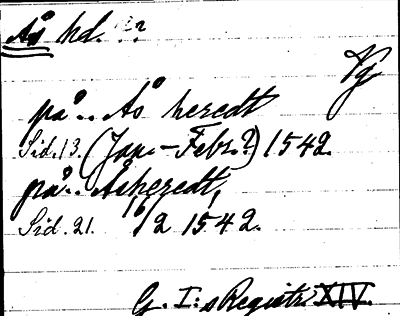 Ås hd. ??
Vg
på.. Ås heredt
Sid. 13. (Jan.-Febr.?) 1542.
på.. Åsheredt,
Sid. 21. 16/2 1542.
G. I:s Registr. XIV.